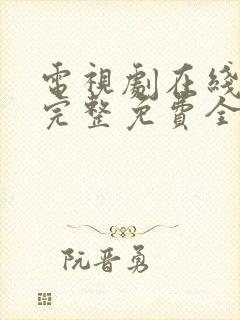 電視劇在綫
完整免費全
阮晋勇